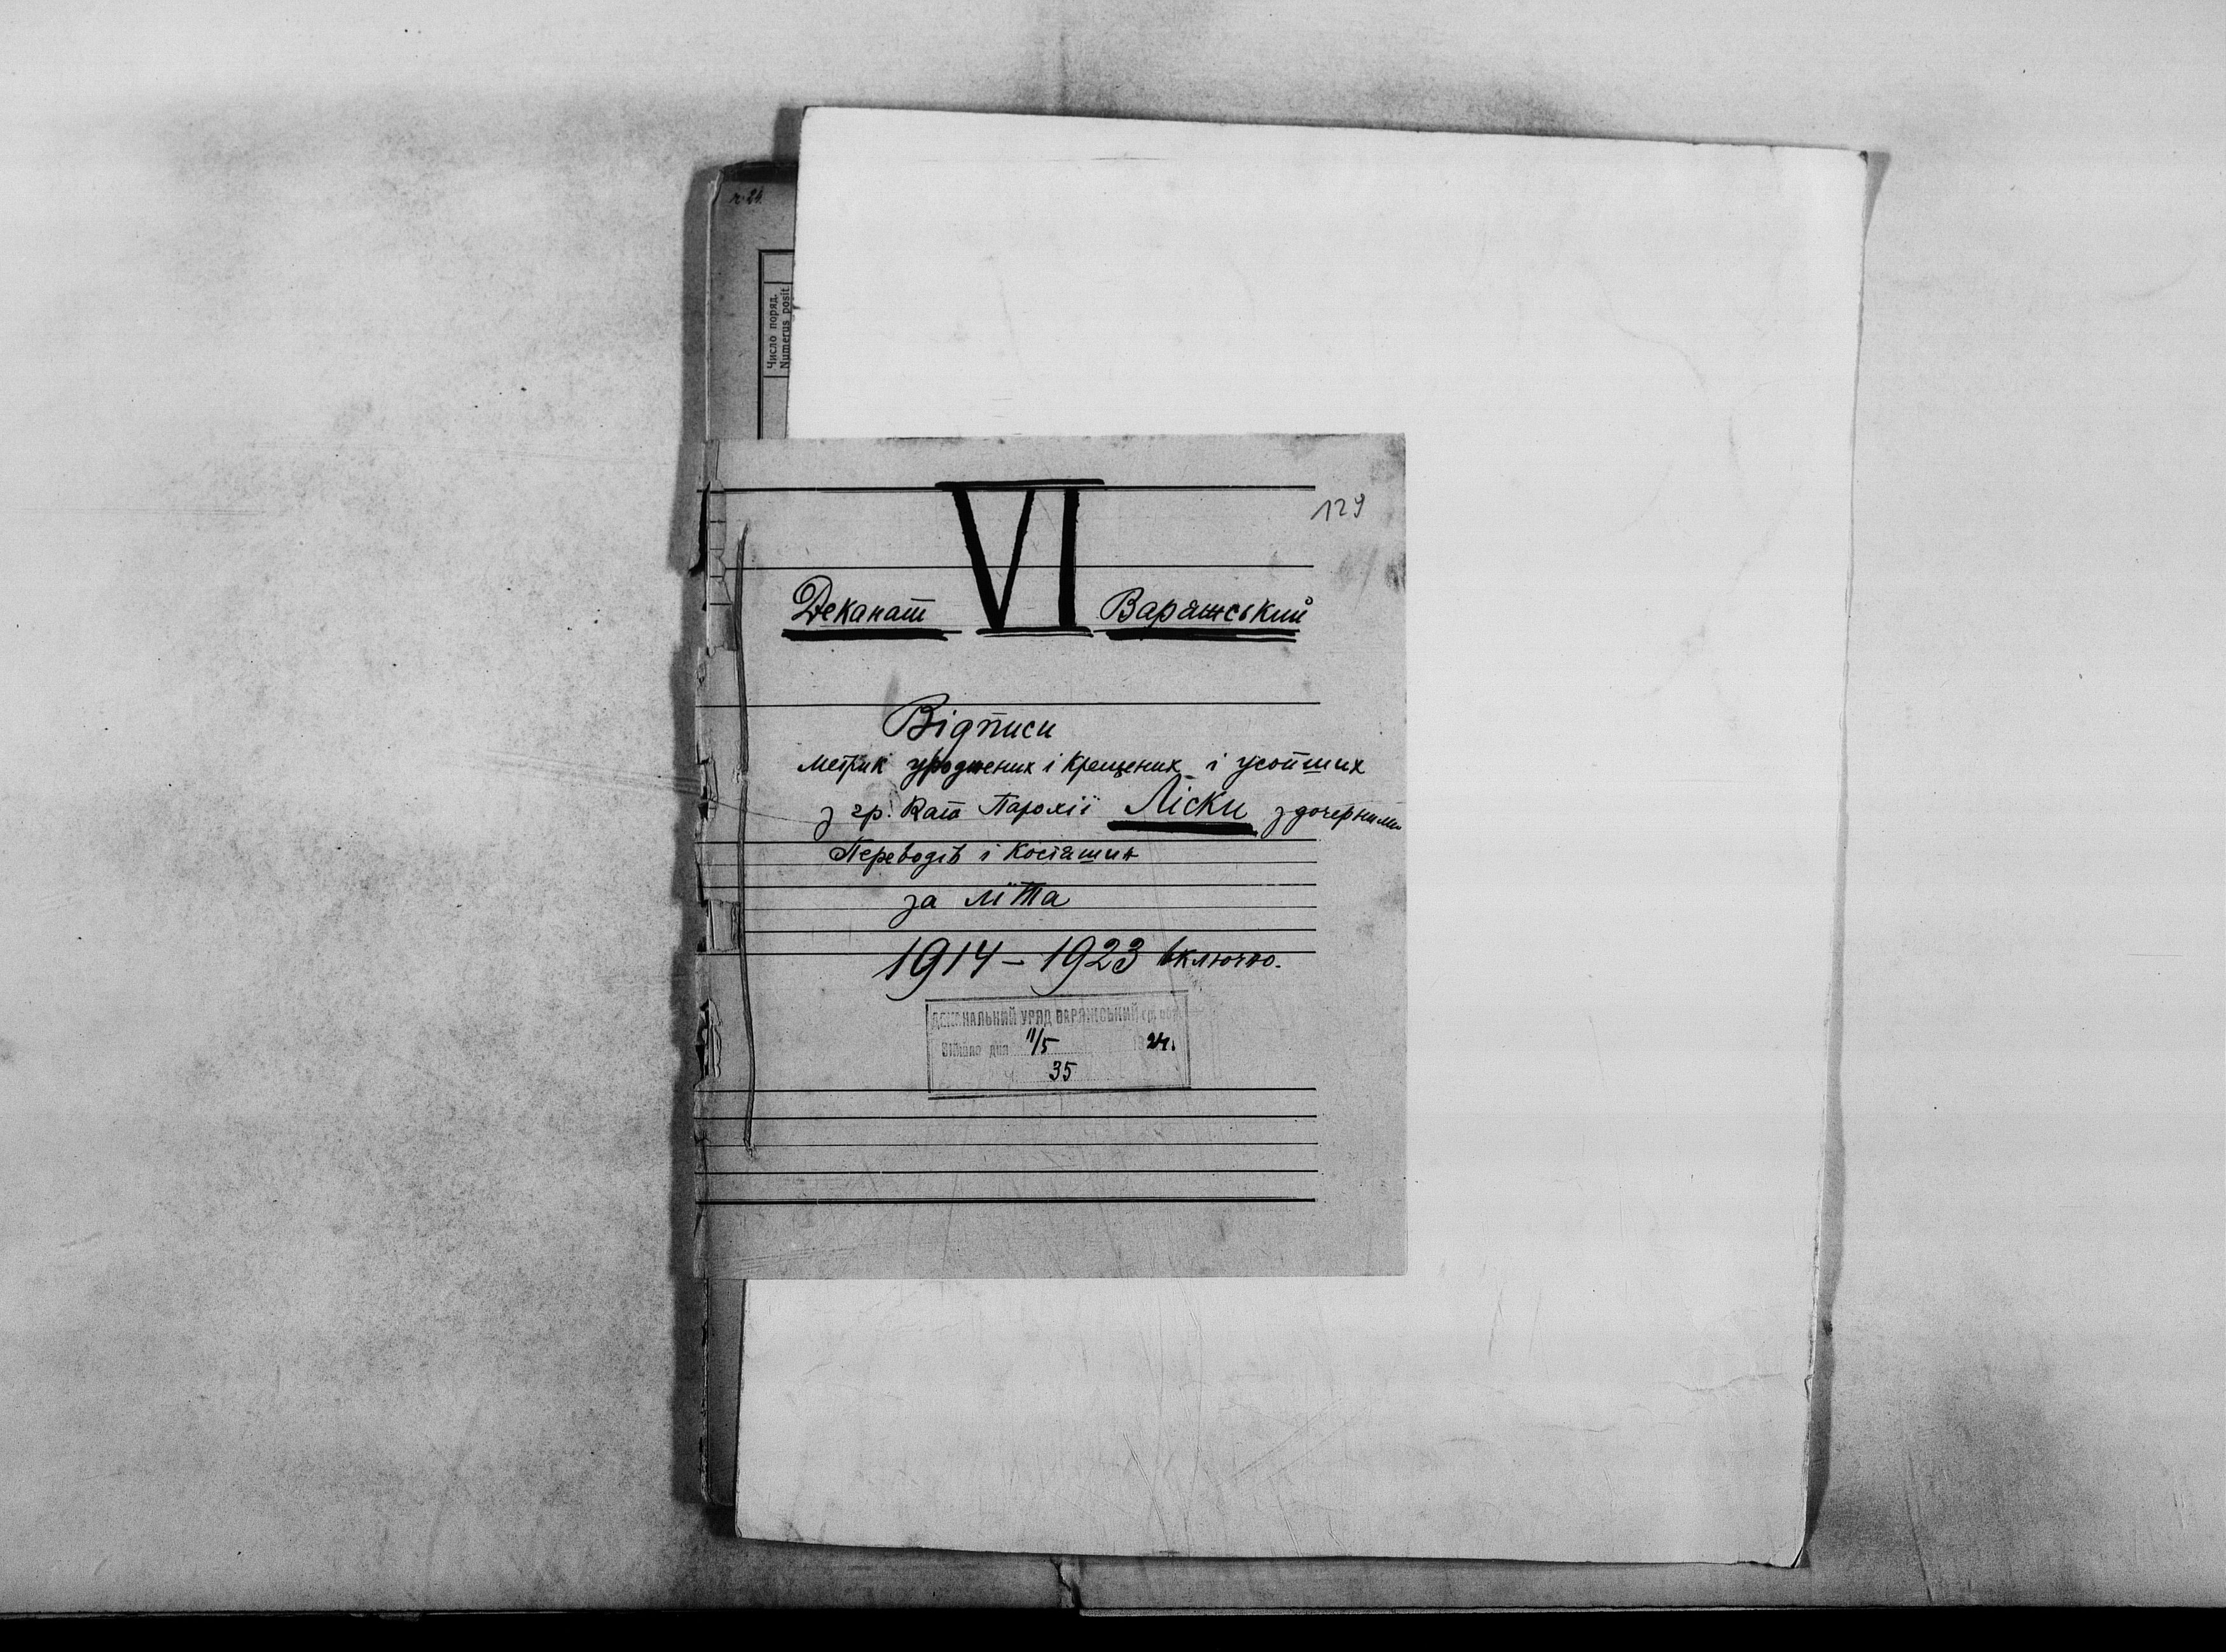 ч. 24.
Число поряд.
Numerus posit.
129
VI
Деканат Варяжський
Відписи
метрик уроджених і крещених і усопших
з гр. кат Парохії Ліски з дочерними
Переводів і Косташин
за літа
1914 – 1923 включно.
ДЕКАНАЛЬНИЙ УРЯД ВАРЯЖСЬКИЙ
дня 11/5 1924.
Ч. 35